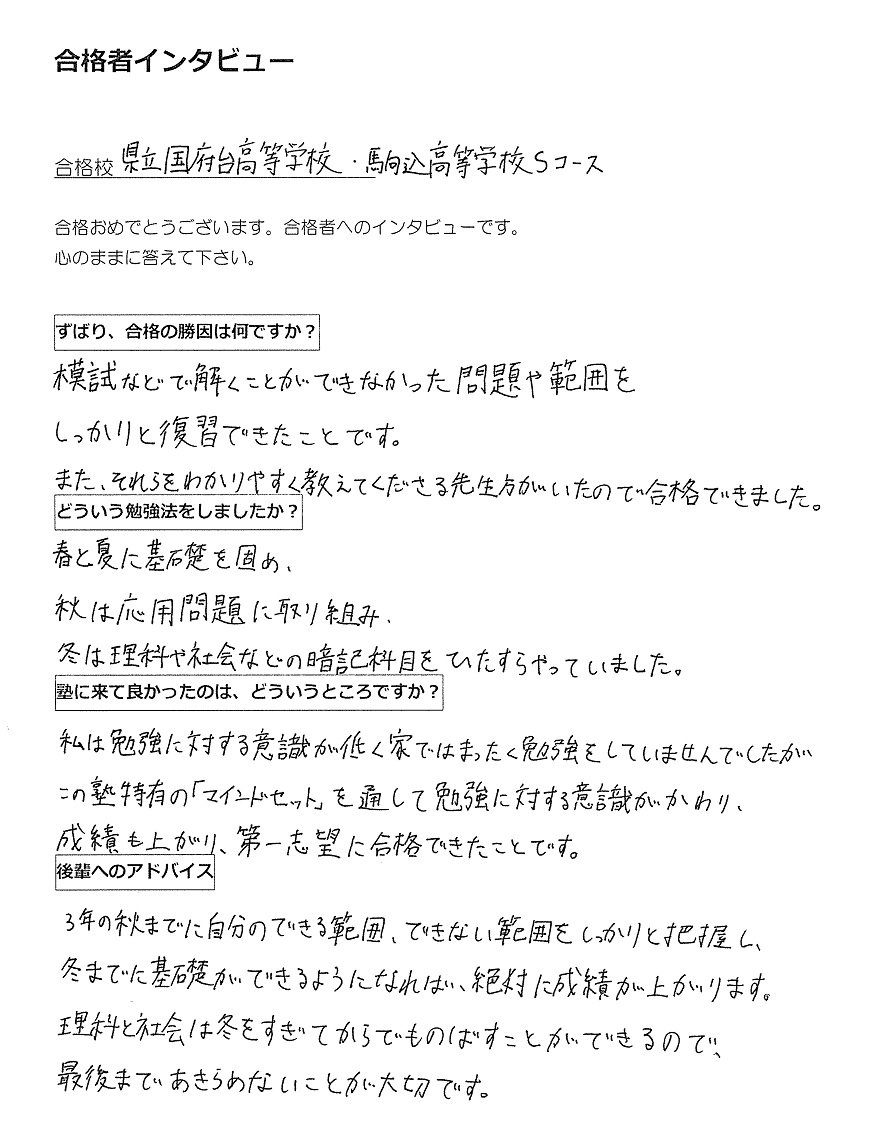 合格者インタビュー
合格校 県立国府台高等学校・駒込高等学校Sコース
合格おめでとうございます。合格者へのインタビューです。
心のままに答えて下さい。
ずばり、合格の勝因は何ですか？
模試などで解くことができなかった問題や範囲を
しっかりと復習できたことです。
また、それらをわかりやすく教えてくださる先生方がいたので合格できました。
どういう勉強法をしましたか？
春と夏に基礎を固め、
秋は応用問題に取り組み、
冬は理科や社会などの暗記科目をひたすらやっていました。
塾に来て良かったのは、どういうところですか？
私は勉強に対する意識が低く家ではまったく勉強をしていませんでしたが
この塾特有の「マインドセット」を通して勉強に対する意識がかわり、
成績も上がり、第一志望に合格できたことです。
後輩へのアドバイス
3年の秋までに自分のできる範囲、できない範囲をしっかりと把握し、
冬までに基礎ができるようになれば、絶対に成績が上がります。
理科と社会は冬をすぎてからでものばすことができるので、
最後まであきらめないことが大切です。